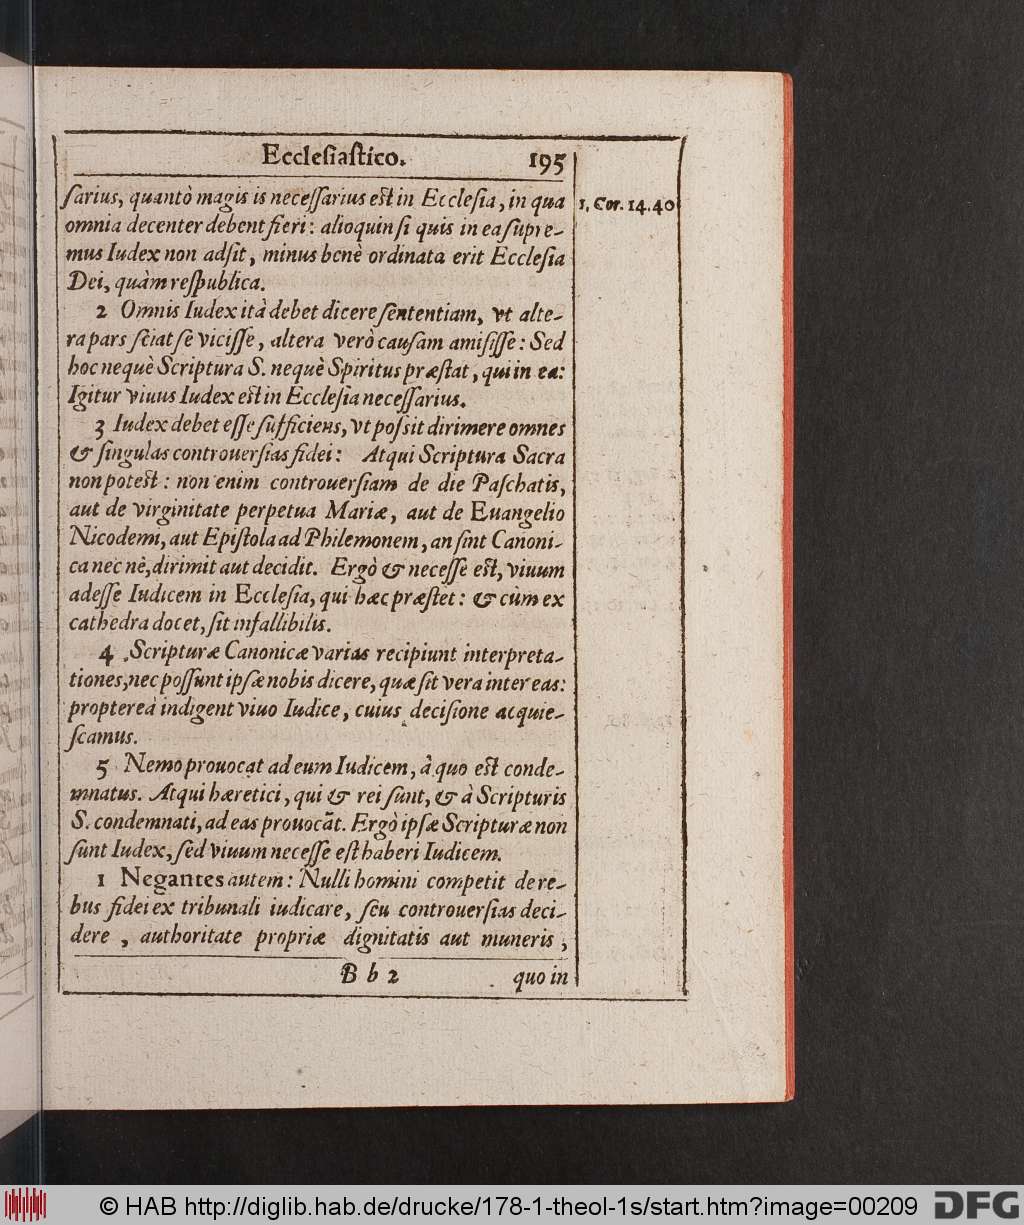 Ecclesiastico. 195
sarius, quantò magis is necessarius est in Ecclesia, in qua
1. Cor. 14.40
omnia decenter debent fieri: alioquin si quis in ea supre-
mus Iudex non adsit, minus benè ordinata erit Ecclesia
Dei, quàm respublica.
2 Omnis Iudex ità debet dicere sententiam, vt alte-
ra pars sciat se vicisse, altera verò causam amisisse: Sed
hoc nequè Scriptura S. nequè Spiritus præstat, qui in ea:
Igitur viuus Iudex est in Ecclesia necessarius.
3 Iudex debet esse sufficiens, vt possit dirimere omnes
& singulas controuersias fidei: Atqui Scriptura Sacra
non potest: non enim controuersiam de die Paschatis,
aut de virginitate perpetua Mariæ, aut de Euangelio
Nicodemi, aut Epistola ad Philemonem, an sint Canoni-
ca nec nè, dirimit aut decidit. Ergò & necesse est, viuum
adesse Iudicem in Ecclesia, qui hæc præstet: & cùm ex
cathedra docet, sit infallibilis.
4 Scripturæ Canonicæ varias recipiunt interpreta-
tiones, nec possunt ipsæ nobis dicere, quæ sit vera inter eas:
proptereà indigent viuo Iudice, cuius decisione acquie-
scamus.
5 Nemo prouocat ad eum Iudicem, à quo est conde-
mnatus. Atqui hæretici, qui & rei sunt, & à Scripturis
S. condemnati, ad eas prouocāt. Ergò ipsæ Scripturæ non
sunt Iudex, sed viuum necesse est haberi Iudicem.
1 Negantes autem: Nulli homini competit de re-
bus fidei ex tribunali iudicare, seu controuersias deci-
dere , authoritate propriæ dignitatis aut muneris ,
B b 2 quo in
© HAB http://diglib.hab.de/drucke/178-1-theol-1s/start.htm?image=00209 DFG